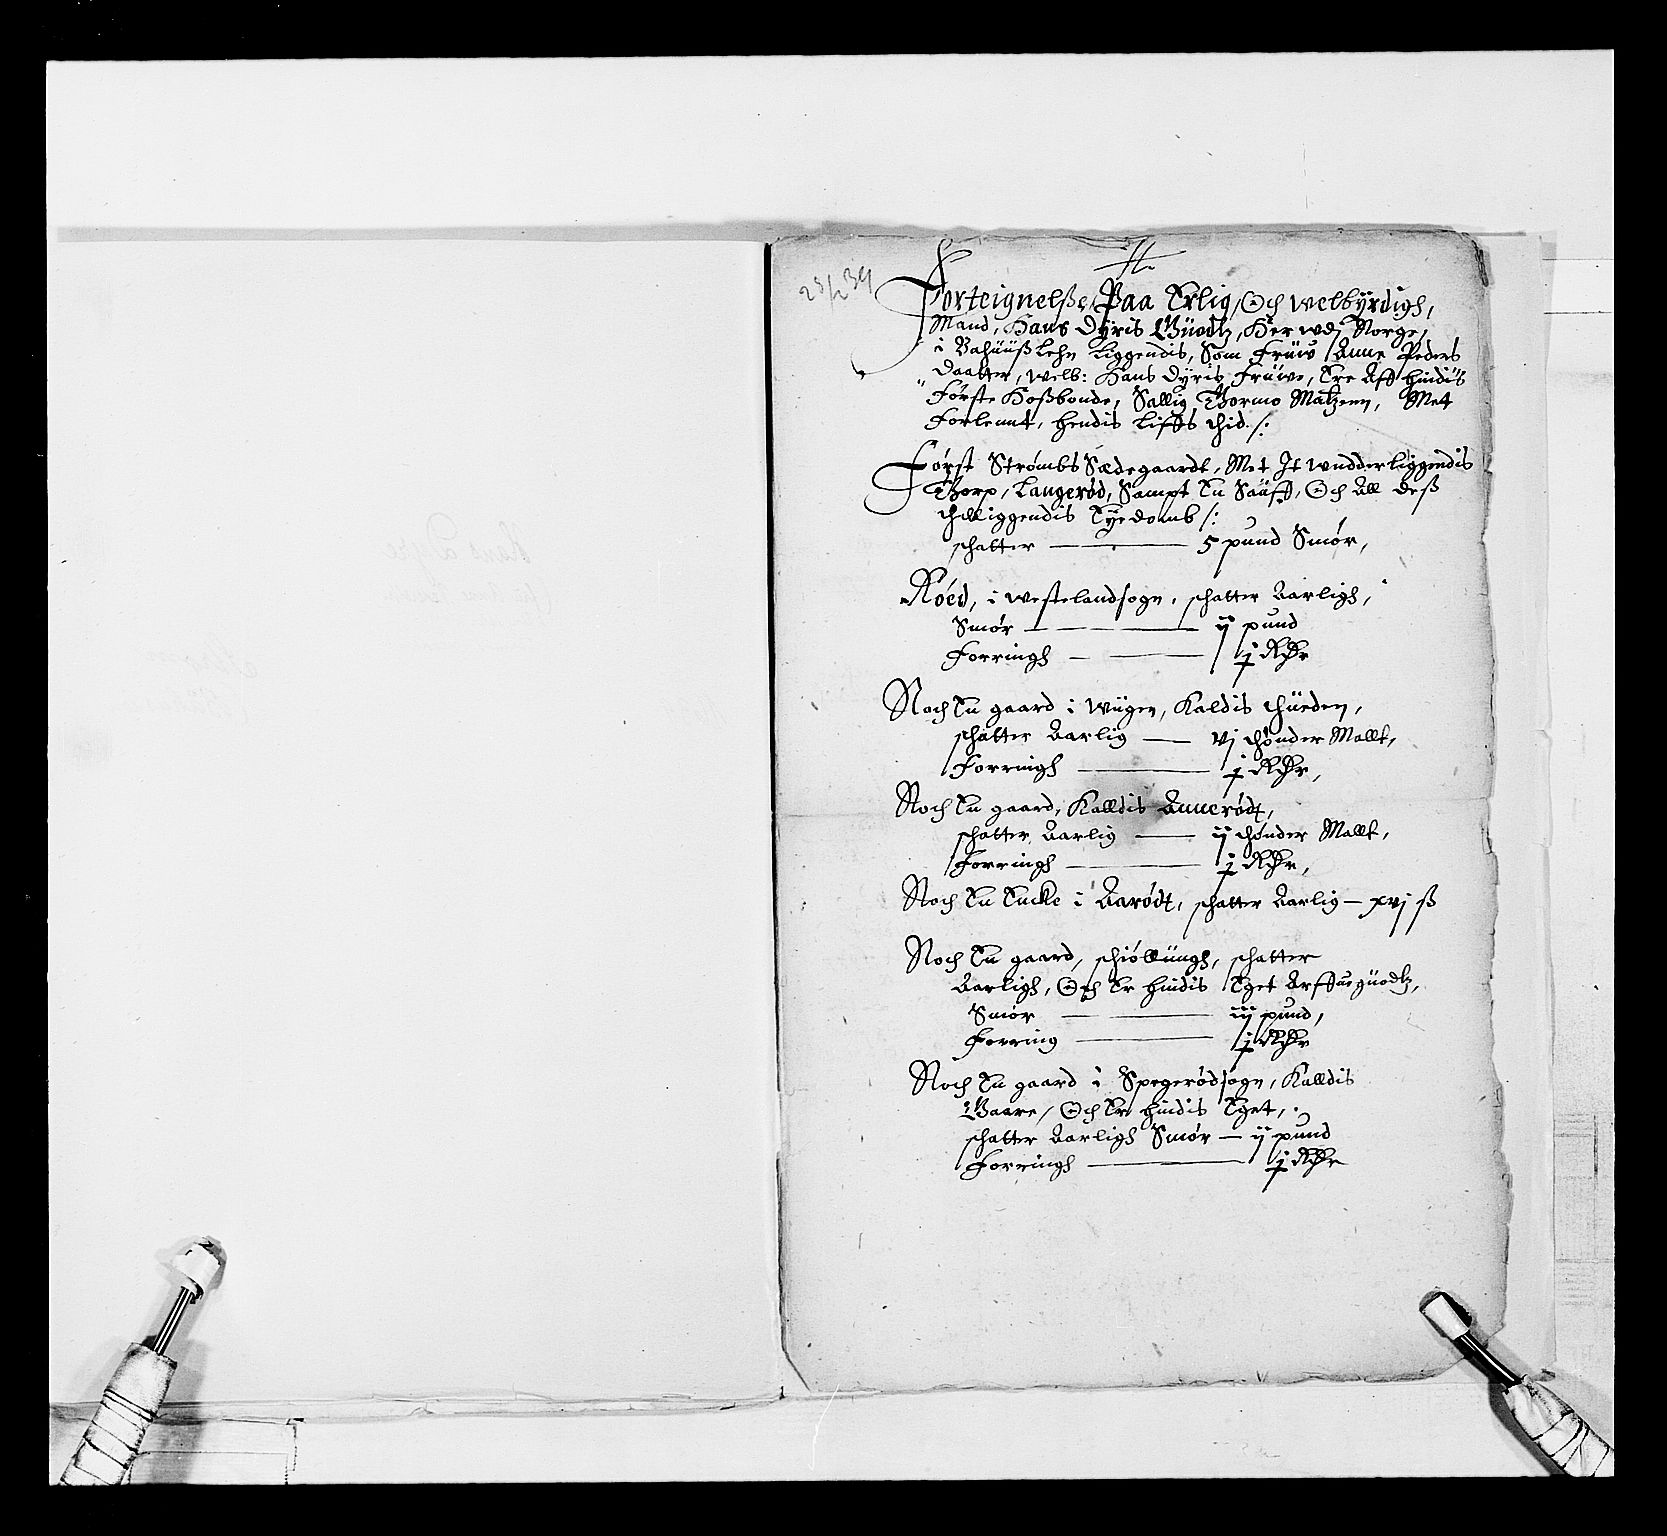 23/2 39
Forteignelße, Paa Erlig, Och welbÿrdigh,
Mand, Hans Dÿris Güodtz, Her wdj Norge,
i Bahüüß Lehn Liggendis, Som Früw Anne Peders
Daatter, welb: Hans Dÿris Früwe, Ere Aff hindis
Første Hoßbonde, Sallig Thormo Matzenn, Met
Forlennt, hendis Liffs thid /:
Først Strømbs Sædegaardt, Met It wndderliggendis
Thorp, Langerød, Sampt En Sauff, Och All deß
thilliggendis Eÿedomb /:
schatter — 5 pund Smør,
Røed, i westelandsogn, schatter Aarligh,
Smør — ij pund
Forringh — j RDr
Noch En gaard i Wügen, Kaldis thüeden,
schatter Aarlig — vj thønder Mallt,
Forringh — j RDr,
Noch En gaard, Kalldis Annerødt,
schatter Aarlig — ij thønder Mallt,
Forringh — j RDr,
Noch En Eucke i Aarødt, schatter Aarlig — xvj ß
Noch En gaard, schiøllüngh, schatter
Aarligh, Och Er hindis Eget Arffue güodtz,
Smør — iij pund,
Forring — j RDr
Noch En gaard i Spegerødsogn, Kalldis
Baare, Och Er hindis Eget,
schatter Aarligh Smør — ij pund
Forringh — j RDr